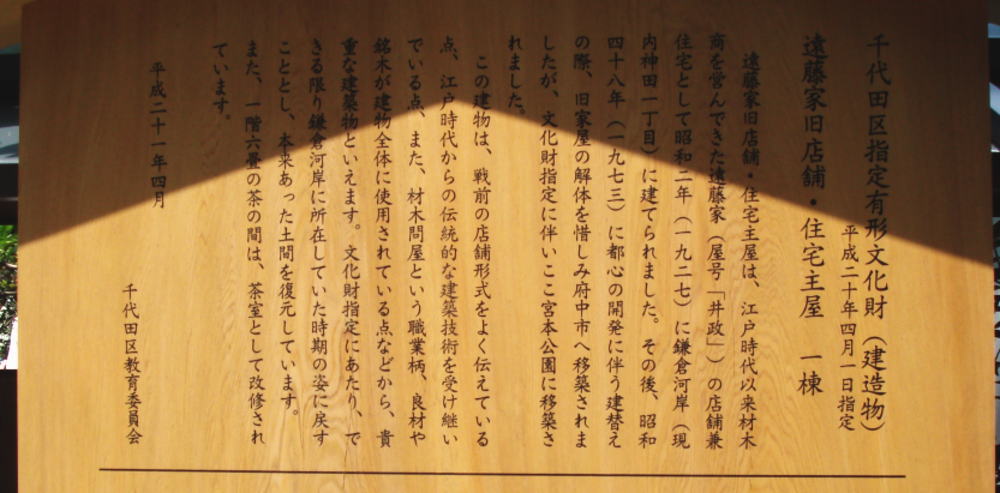 千代田区指定有形文化財（建造物）
平成二十年四月一日指定
遠藤家旧店舗・住宅主屋　一棟
遠藤家旧店舗・住宅主屋は、江戸時代以来材木
商を営んできた遠藤家（屋号「井政」）の店舗兼
住宅として昭和二年（一九二七）に鎌倉河岸（現
内神田一丁目）に建てられました。その後、昭和
四十八年（一九七三）に都心の開発に伴う建替え
の際、旧家屋の解体を惜しみ府中市へ移築されま
したが、文化財指定に伴いここ宮本公園に移築さ
れました。
この建物は、戦前の店舗形式をよく伝えている
点、江戸時代からの伝統的な建築技術を受け継い
でいる点、また、材木問屋という職業柄、良材や
銘木が建物全体に使用されている点などから、貴
重な建築物といえます。文化財指定にあたり、で
きる限り鎌倉河岸に所在していた時期の姿に戻す
こととし、本来あった土間を復元しています。
また、一階六畳の茶の間は、茶室として改修され
ています。
平成二十一年四月
千代田区教育委員会